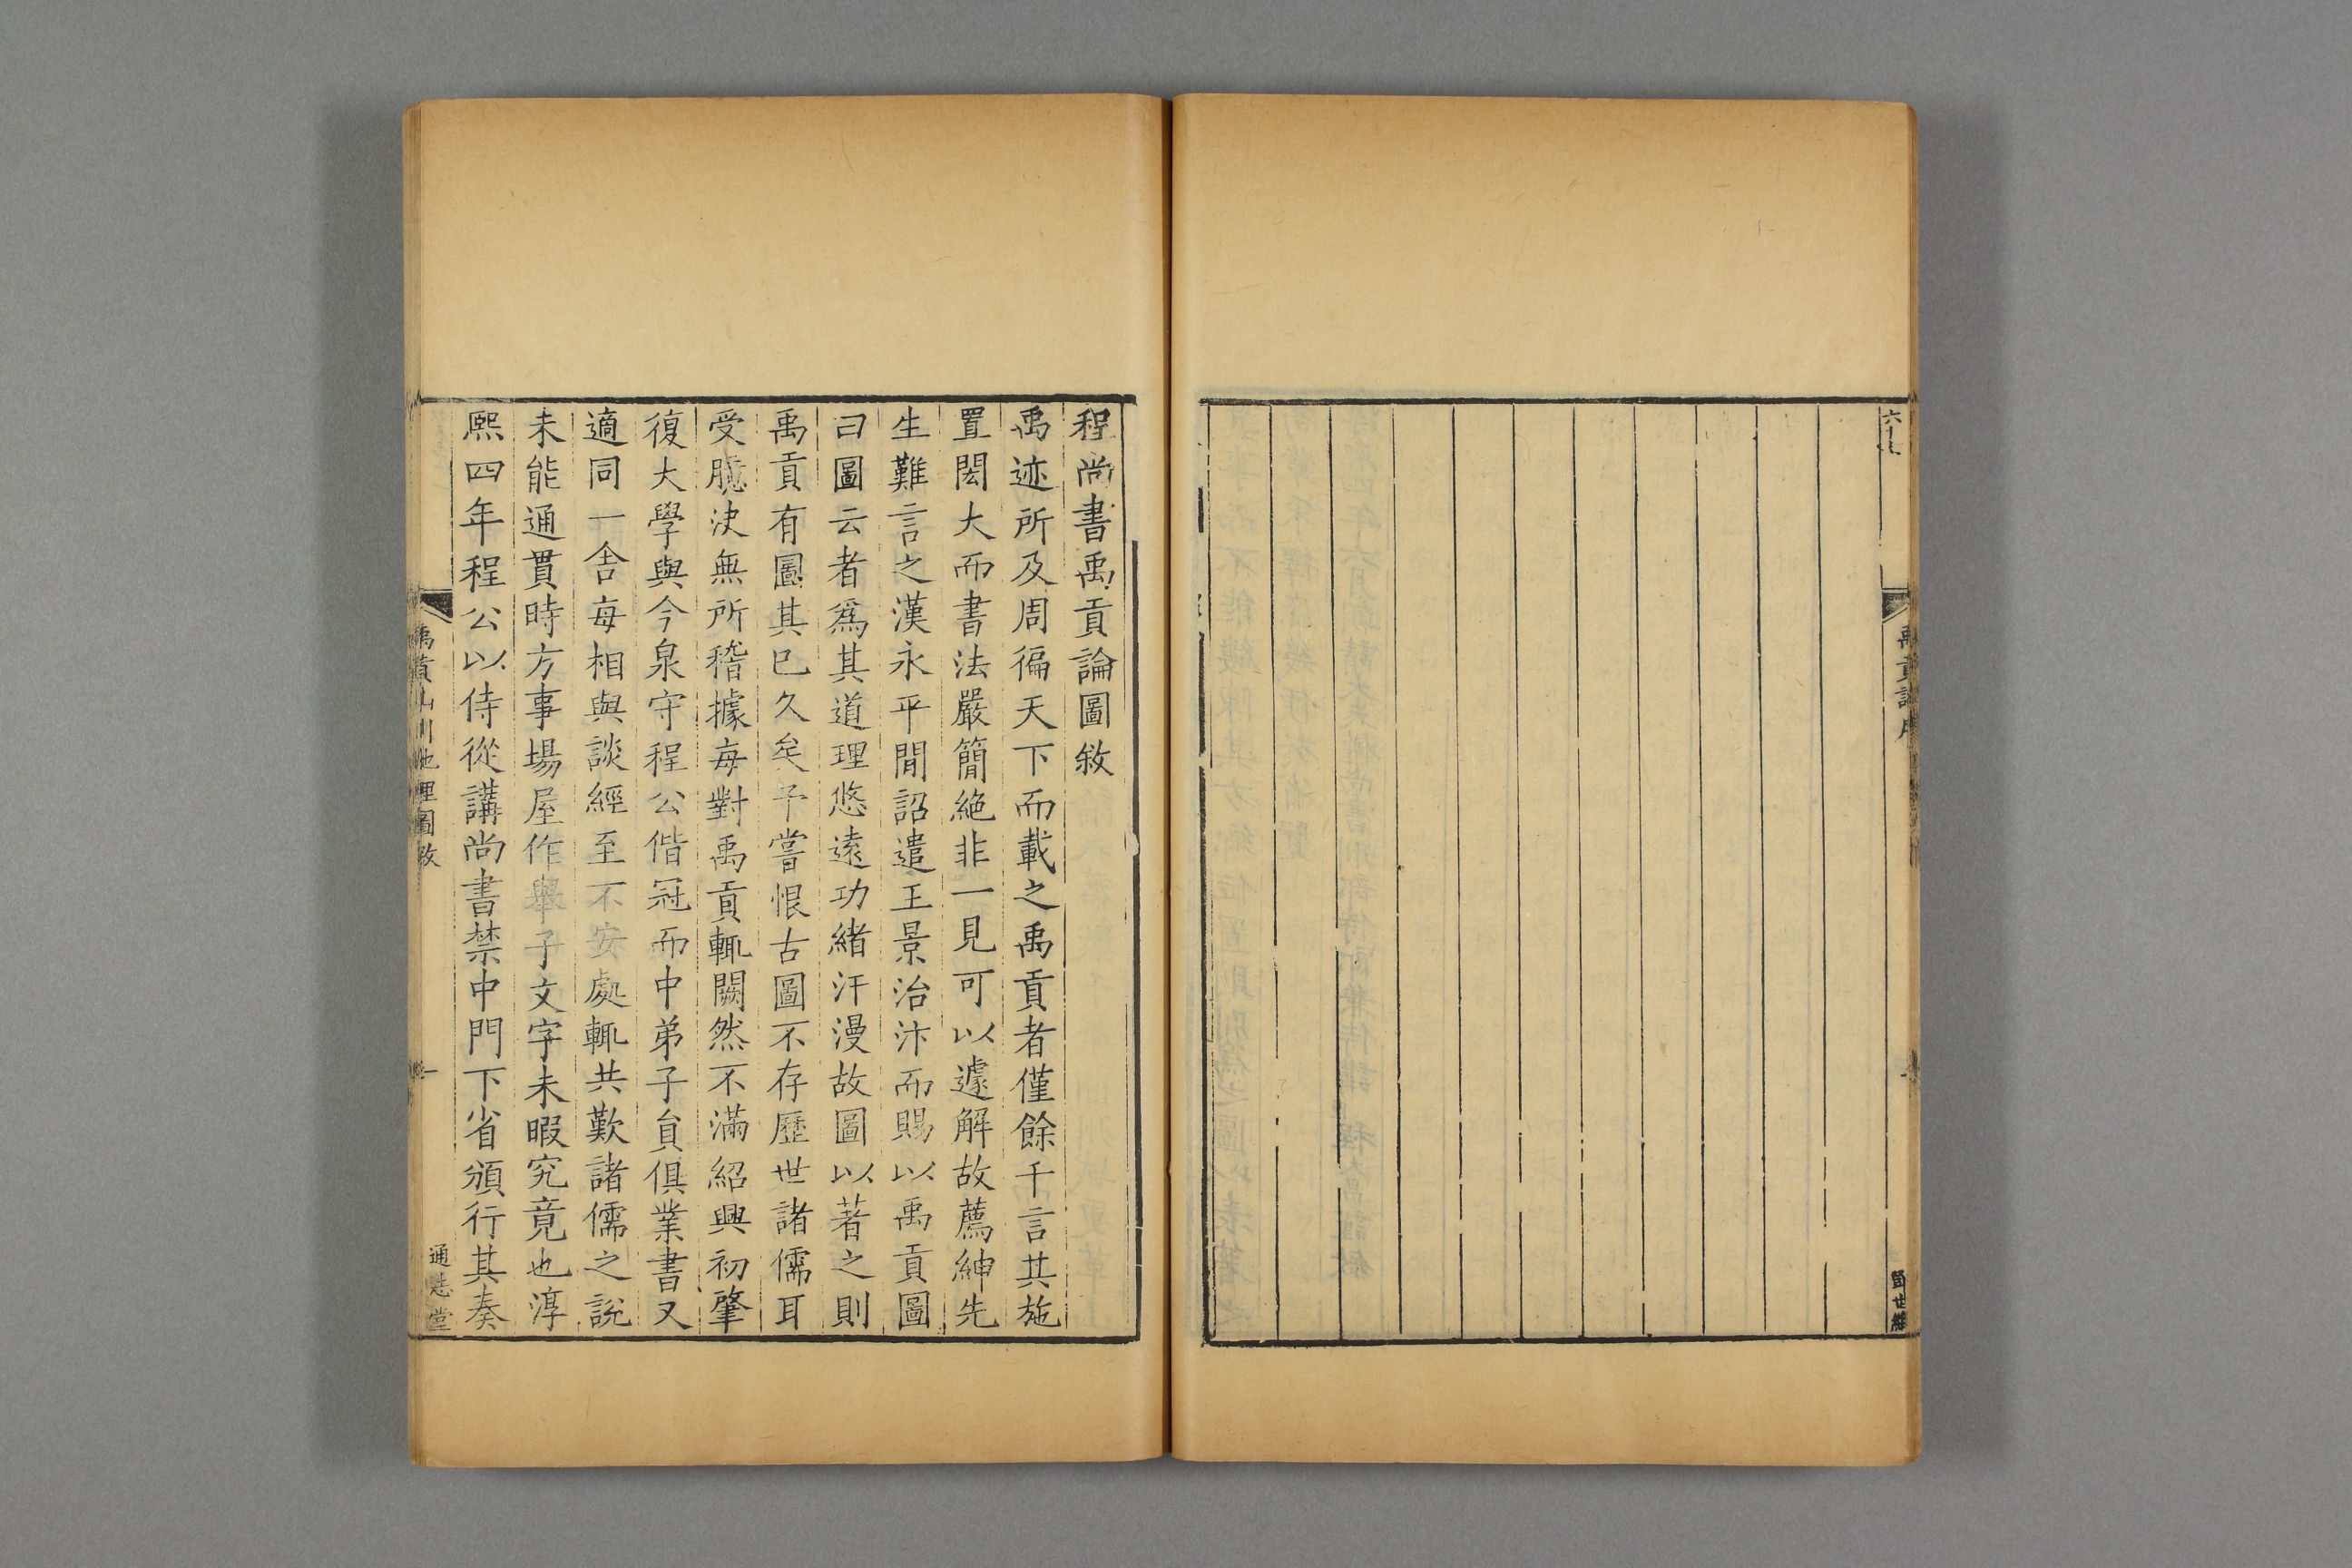 程尚書禹貢論圖敘
禹迹所及周徧天下而載之禹貢者僅餘千言其施
置閎大而書法嚴簡絶非一見可以遽解故薦紳先
生難言之漢永平間詔遣王景治汴而賜以禹貢圖
曰圖云者爲其道理悠遠功緒汗漫故圖以著之則
禹貢有圖其已久矣予嘗恨古圖不存歷世諸儒耳
受臆決無所稽據每對禹貢輒闕然不滿紹興初肇
復大學與今泉守程公偕冠而中弟子貟俱業書又
適同一舍每相與談經至不安處輒共歎諸儒之說
未能通貫時方事場屋作舉子文字未暇究竟也淳
熙四年程公以侍從講尚書禁中門下省頒行其奏
禹貢山川地理圖敘
一
通志堂
禹貢論序